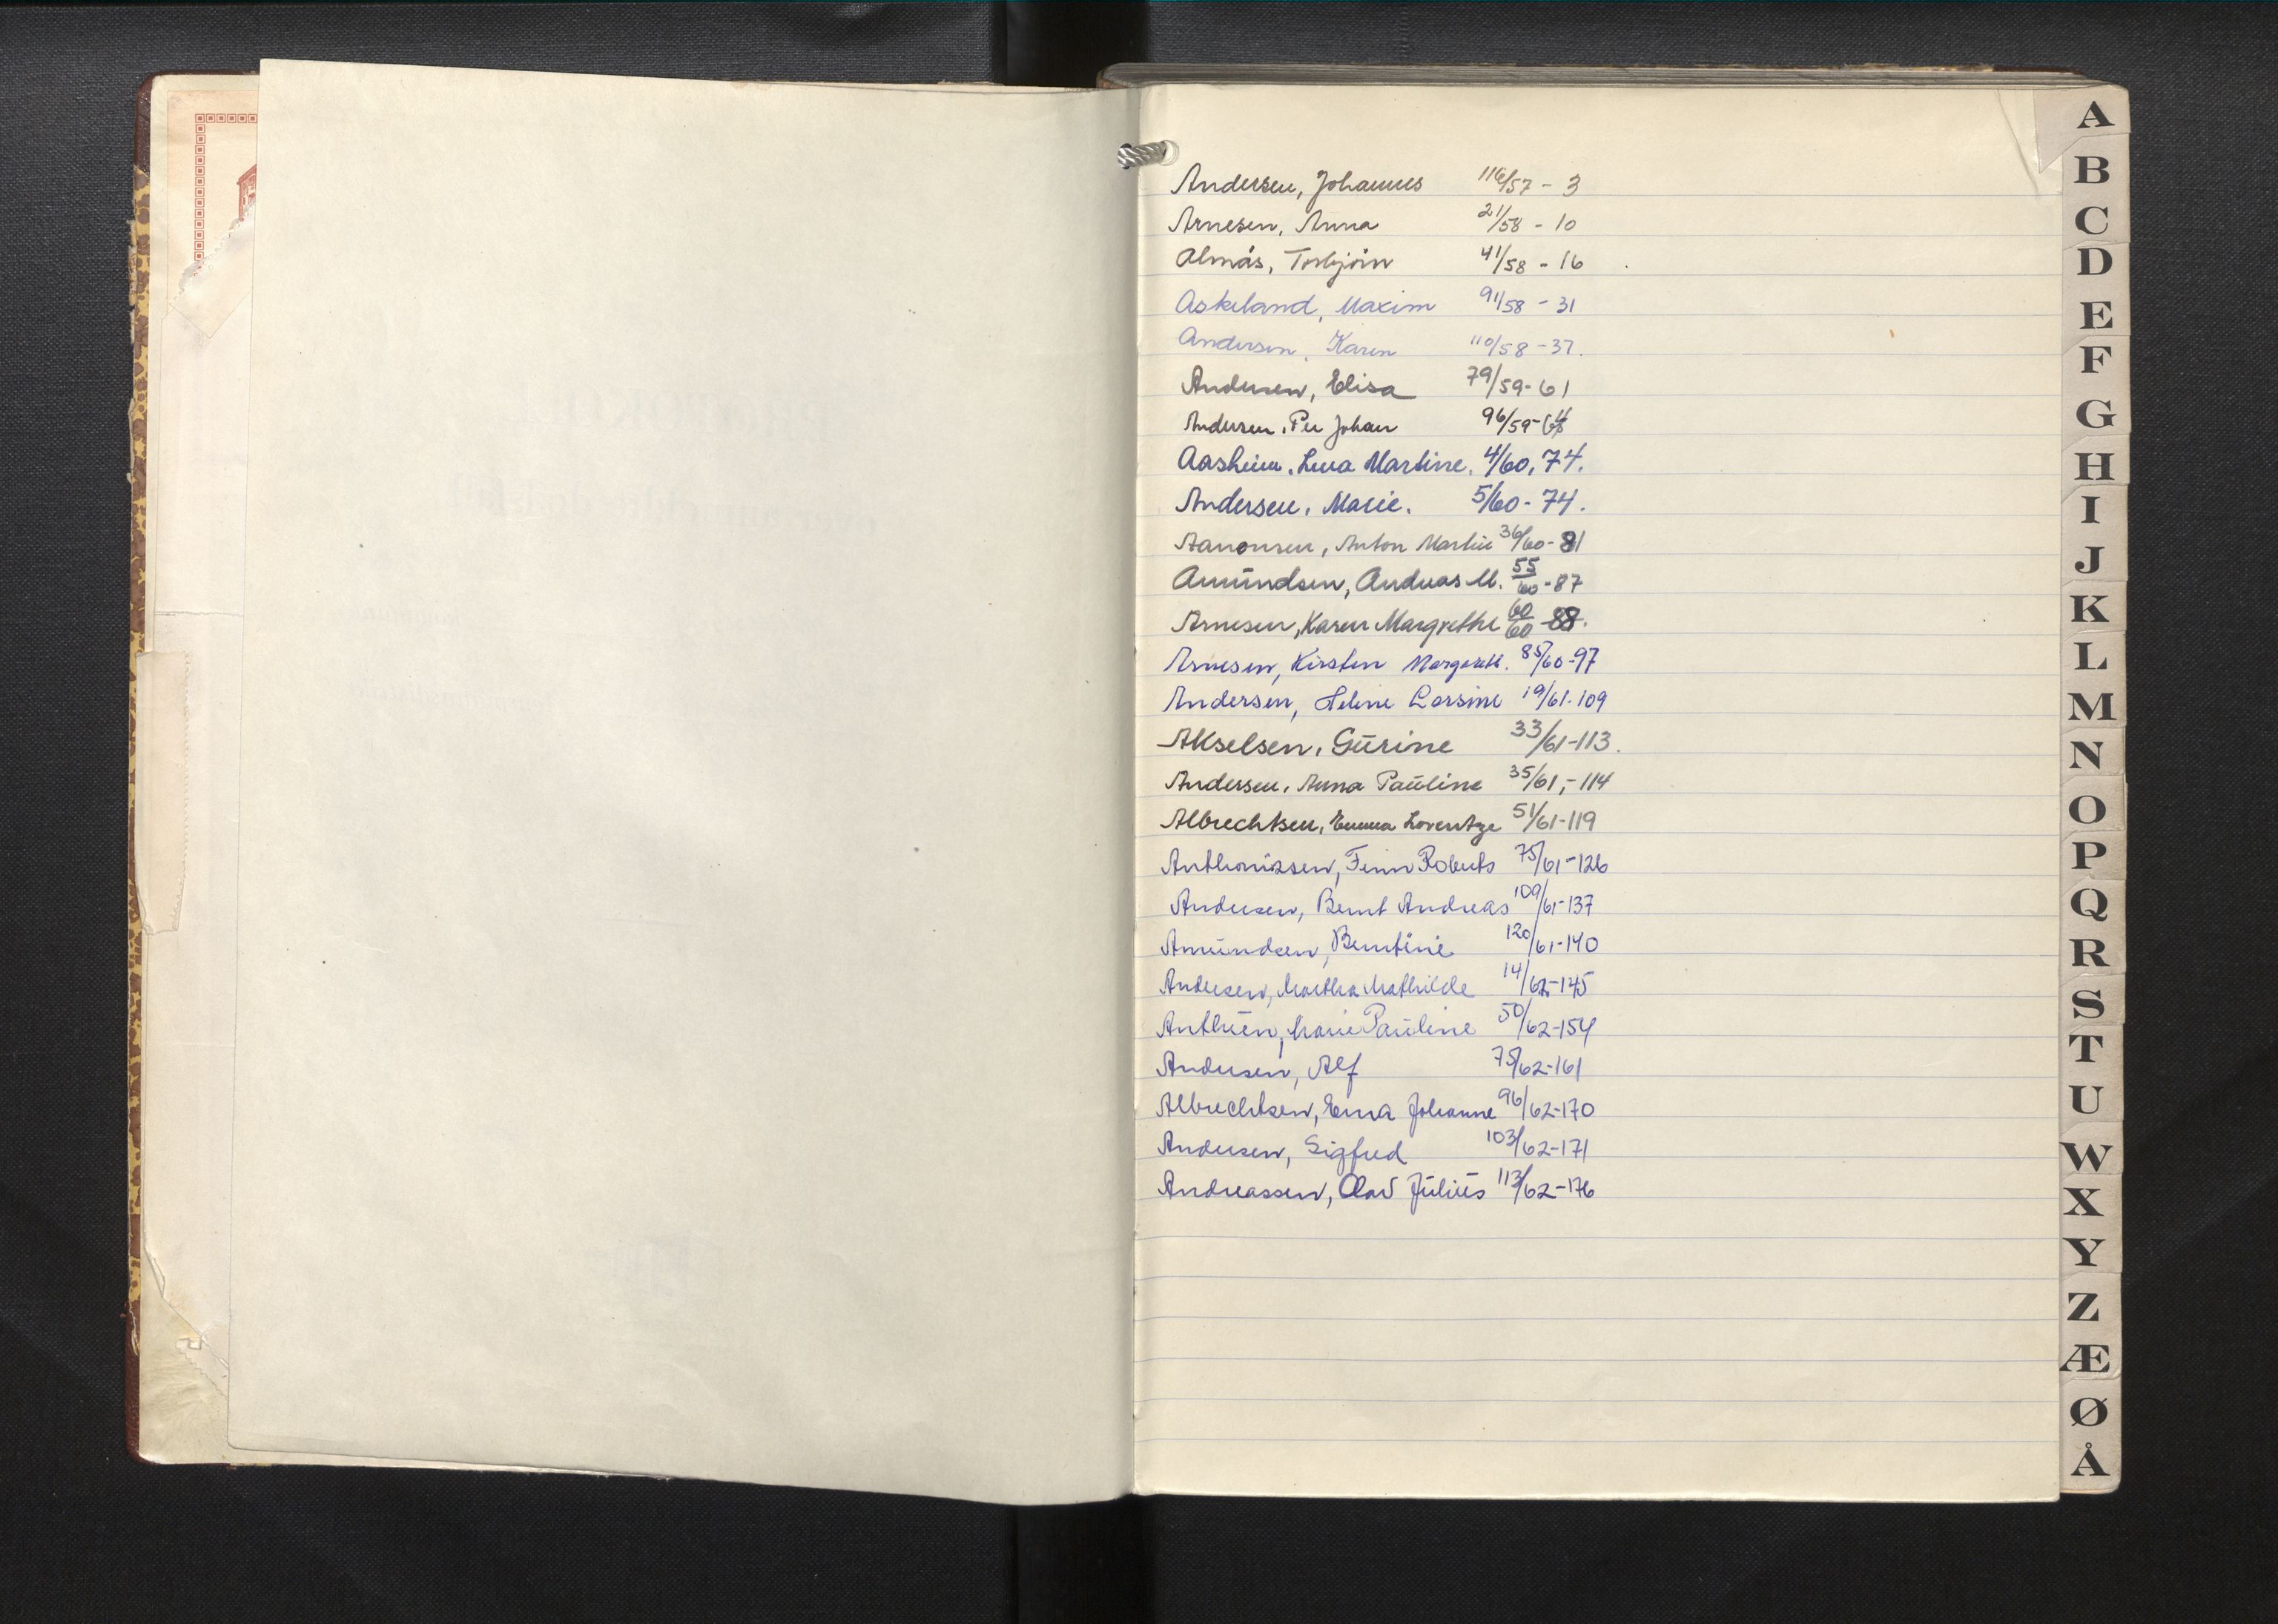 Andersen, Johannes 116/57 - 3
Arnesen, Anna 21/58 - 10
Almås, Torbjørn 41/58 - 16
Askeland, Maxim 91/58 - 31
Andersen, Karen 110/58 - 37.
Andersen, Elisa 79/59 - 61
Andersen, Per Johan 96/59 -
Aasheim, Lena Martine. 4/60, 74.
Andersen, Marie. 5/60 - 74.
Aanonsen, Anton Martin 36/60 - 81
Amundsen, Andreas M. 55/60 - 87
Arnesen, Karen Margrethe 60/60 - 88.
Arnesen, Kirsten Margareth. 85/60 - 97
Andersen, Helene Larsine 19/61 - 109
Akselsen, Gurine 33/61 - 113.
Andersen, Anna Pauline 35/61, - 114
Albrechtsen, Emma Lorentze 51/61 - 119
Anthonissen, Finn Roberts 75/61 - 126
Andersen, Bernt Andreas 109/61 - 137
Amundsen, Berntine 120/61 - 140
Andersen, Martha Mathilde 14/62 - 145
Anthuen, Marie Pauline 50/62 - 154
Andersen, Alf 75/62 - 161
Albrechtsen, Erna Johanne 96/62 - 170
Andersen, Sigfred 103/62 - 171
Andreassen, Olav Julius 113/62 - 176
A
B
C
D
E
F
G
H
I
J
K
L
M
N
O
P
Q
R
S
T
U
W
X
Y
Z
Æ
Ø
Å